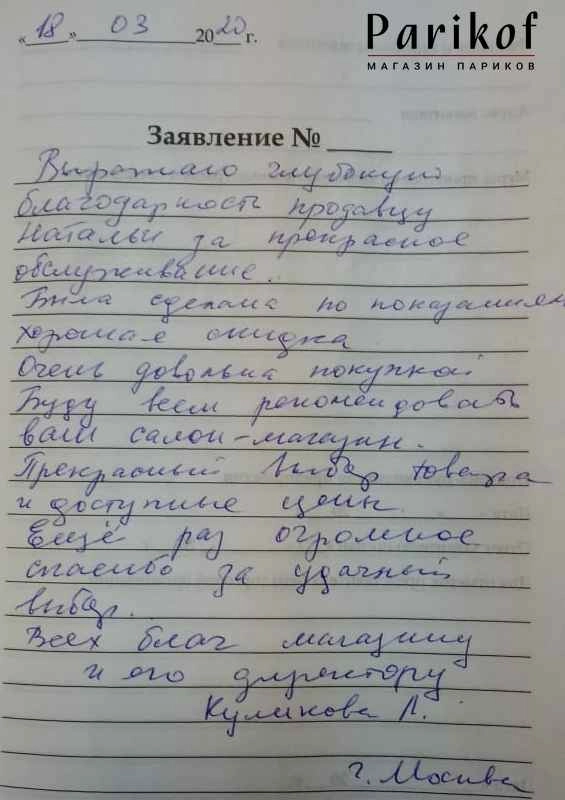 Parikof
МАГАЗИН ПАРИКОВ
«18» 03 2020 г.
Заявление №
Выражаю глубокую
благодарность продавцу
Натальи за прекрасное
обслуживание.
Была сделана по показаниям
хорошая скидка
Очень довольна покупкой
Буду всем рекомендовать
ваш салон-магазин.
Прекрасный выбор товара
и доступные цены.
Ещё раз огромное
спасибо за удачный
выбор.
Всех благ магазину
и его директору
Куликова Л.
г. Москва